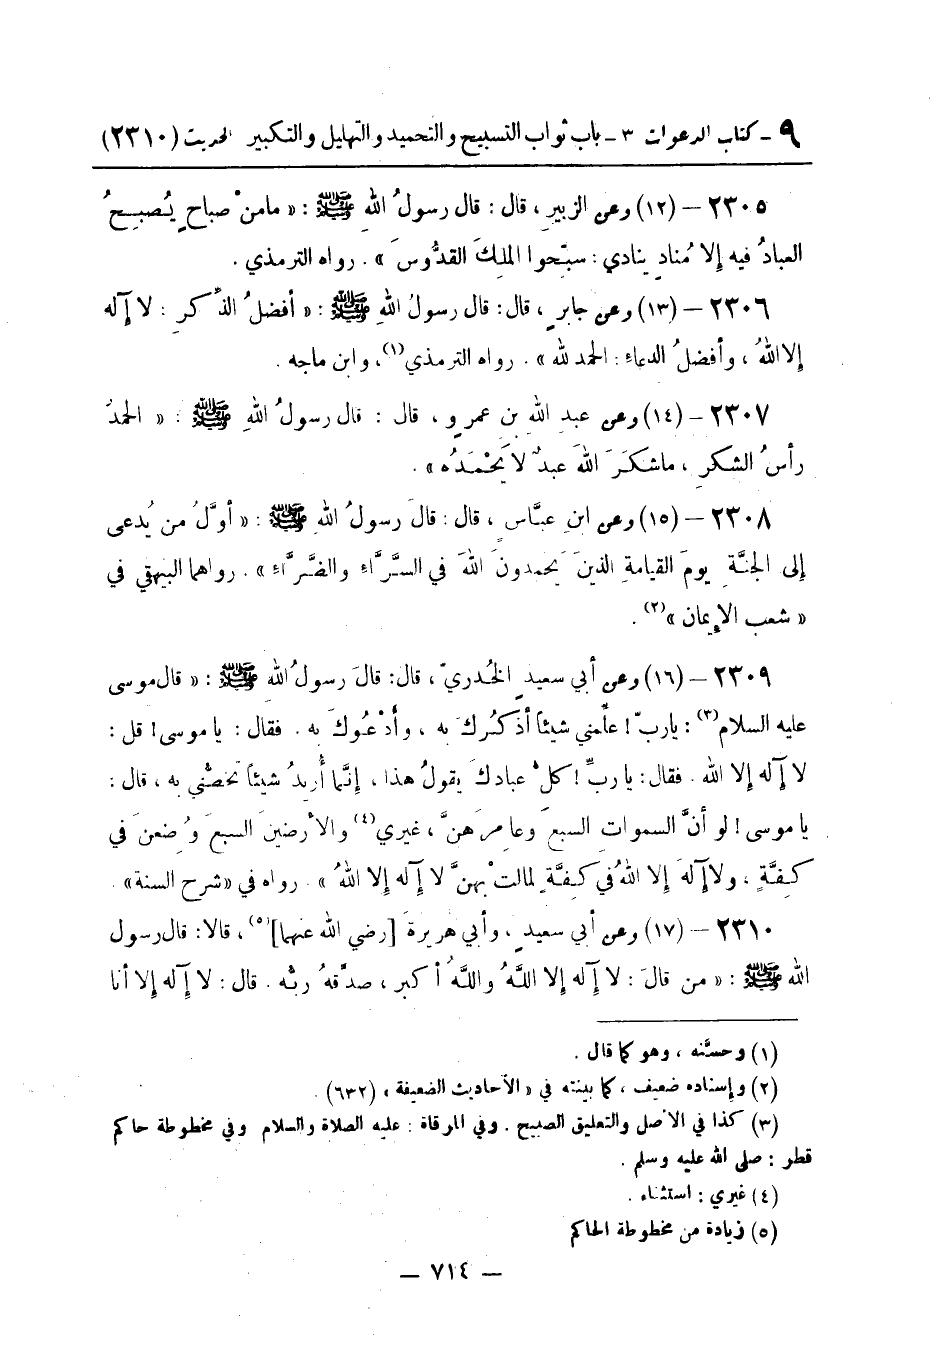 ٩ ـ كتاب الدعوات ٣ ـ باب ثواب التسبيح والتحميد والتهليل والتكبير الحديث (٢٣١٠)
٢٣٠٥ – (١٢) وعن الزبيرِ ، قال : قال رسولُ اللهِ ﷺ : « مامنْ صباحٍ يُصبِحُ
العبادُ فيه إلا مُنادٍ ينادي : سبّحوا الملِكَ القدُّوسَ » . رواه الترمذي .
٢٣٠٦ – (١٣) وعن جابرٍ ، قال : قال رسولُ اللهِ ﷺ : « أفضلُ الذّكرِ : لا إله
إلا اللهُ ، وأفضلُ الدعاءِ : الحمد لله » . رواه الترمذي(١)، وابن ماجه .
٢٣٠٧ – (١٤) وعن عبد الله بن عمرٍو ، قال : قال رسولُ اللهِ ﷺ : « الحمدُ
رأسُ الشكرِ ، ماشكَرَ اللهَ عبدٌ لا يَحْمَدُه » .
٢٣٠٨ – (١٥) وعن ابنِ عبَّاسٍ ، قال : قالَ رسولُ اللهِ ﷺ : « أوَّلُ من يُدعى
إلى الجنَّةِ يومَ القيامةِ الذينَ يَحمدونَ اللهَ في السَّرَّاءِ والضَّرَّاءِ » . رواهما البيهقي في
« شعب الإيمان »(٢) .
٢٣٠٩ – (١٦) وعن أبي سعيدٍ الخُدريّ ، قال: قالَ رسولُ اللهِ ﷺ : « قال موسى
عليه السلام(٣) : ياربّ ! علِّمني شيئاً أذكُرك به ، وأدْعُوكَ به . فقال : يا موسى ! قل :
لا إله إلا الله . فقال : يا ربِّ ! كلُّ عبادكَ يقولُ هذا ، إنَّما أُريدُ شيئاً تخصُّني به ، قال :
يا موسى ! لو أنَّ السموات السبعَ وعامرَهنَّ ، غيري(٤) والأرضينَ السبعَ وُضعنَ في
كفَّةٍ ، ولا إلهَ إلا اللهُ في كفَّةٍ لمالتْ بهنَّ لا إله إلا اللهُ » . رواه في «شرح السنة» .
٢٣١٠ – (١٧) وعن أبي سعيدٍ ، وأبي هريرةَ [رضي الله عنهما](٥) ، قالا: قال رسول
الله ﷺ : « من قالَ : لا إله إلا اللَّهُ واللَّهُ أكبر ، صدَّقهُ ربُّه . قال : لا إله إلا أنا
(١) وحسَّنه ، وهو كما قال .
(٢) وإسناده ضعيف ، كما بينته في « الأحاديث الضعيفة » (٦٣٢) .
(٣) كذا في الأصل والتعليق الصبيح . وفي المرقاة : عليه الصلاة والسلام وفي مخطوطة حاكم
قطر : صلى الله عليه وسلم .
(٤) غيري : استثناء .
(٥) زيادة من مخطوطة الحاكم
– ٧١٤ –